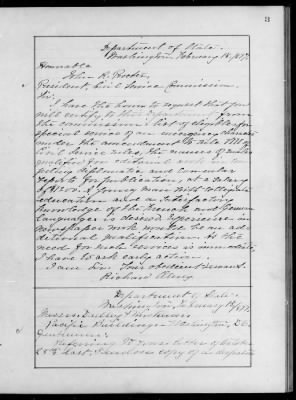 3
Department of State.
Washington, February 18, 1897.
Honorable
John R. Procter,
President, Civil Service Commission.
Sir:
I have the honor to request that you
will certify to this Department from
the commission's list of eligibles for
special service of an emergency character
under the amendment to rule VIII of
civil service rules, the names of persons
qualified for editorial work in
diplomatic and consular
reports for publication, at a salary
of $1200. A young man with collegiate
education and a satisfactory
knowledge of the French and German
languages is desired. Experience in
newspaper work would be an ad-
ditional qualification. As the
need for such services is immediate,
I have to ask early action.
I am Sir, Your obedient servant,
Richard Olney
Department of State.
Washington, February 18, 1897.
Pacific Building, Washington, D.C.
Gentlemen:
Referring to your letter of October
28th last, I enclose copy of a despatch